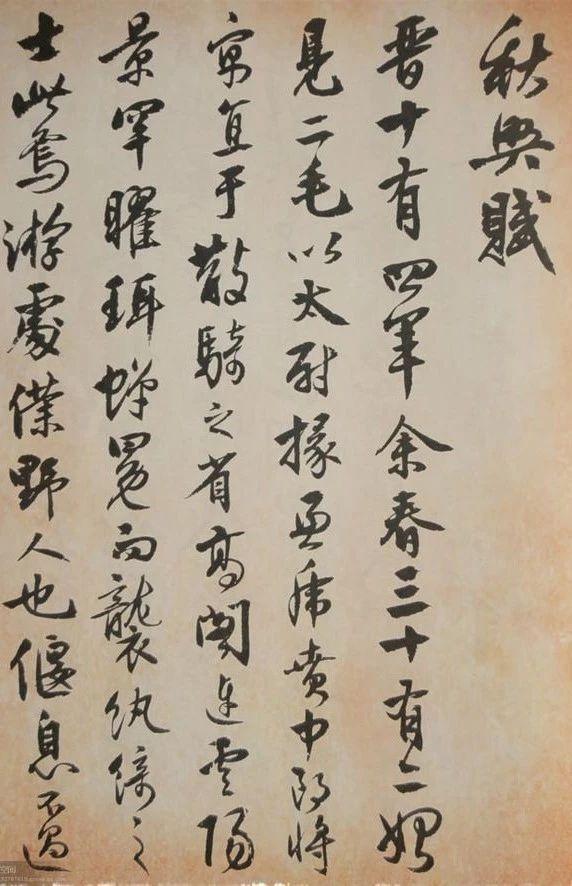 秋興賦
晋十有四年余春三十有二始
見二毛以太尉掾兼虎賁中郎將
寓直于散騎之省高閣連雲陽
景罕曜珥蟬冕而襲紈綺之
士此焉游處僕野人也偃息不過
空间